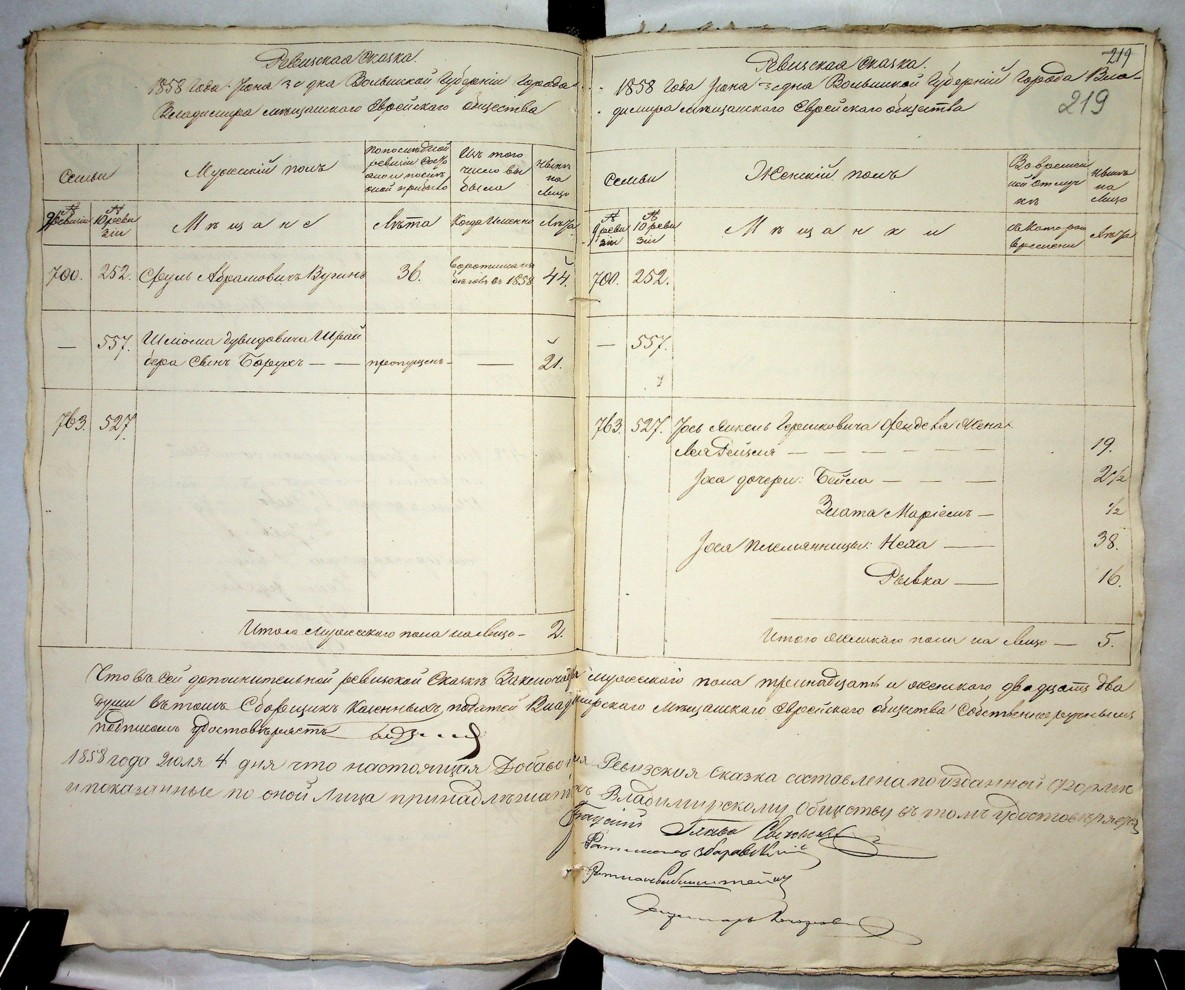 Ревизская Сказка.
1858 Года Июня 30 дня Волынской Губерніи Города
Владимира мѣщанского Еврейского общества
Семьи
Мужескій полъ
По последной ревизіи состояло и после оной прибыло
Изъ того число выбыло
Нынѣ на Лицо
№ 9 ревизіи
№ 10 ревизіи
Мѣщане
Лѣта
Когда Именно
Лѣта
700. 252. Сруль Абрамовичъ 36. въ 1858 44.
— 557. Шлиома
сынъ Борухъ — — пропущенъ — — 21.
763. 527.
Итого мужескаго пола на лицо — 2.
219
219
Ревизская Сказка.
1858 Года Июня 30 дна Волынской Губерніи Города Вла-
димира мѣщанского Еврейского общества
Семьи
Женскій полъ
Во временной отлучкѣ
Нынѣ на Лицо
№ 9 ревизіи
№ 10 ревизіи
Мѣщанки
Съ которого времени
Лѣта
700. 252.
— 557.
763. 527. Жена
— — — — — 19.
дочери: Бейла — — — 2 1/2
Злата Маріемъ — 1/2
племянницы: Неха — — 38.
Рывка — 16.
Итого женскаго пола на Лицо — 5.
Что въ сей дополнительной ревизской Сказкѣ Заключается мужеского пола тринадцать и женского двадцать два
души въ томъ Сборщикъ Казенныхъ податей Владимирского Мѣщанского Еврейского общества Собственноручнымъ
подписомъ удостовѣряетъ
1858 года Июля 4 дня что настоящая Добавочная Ревизская Сказка составлена по изданной формѣ
и показанные по оной Лица принадлежатъ къ Владимирскому Обществу въ томъ удостовѣряетъ
Глава
Ратманъ
Ратманъ